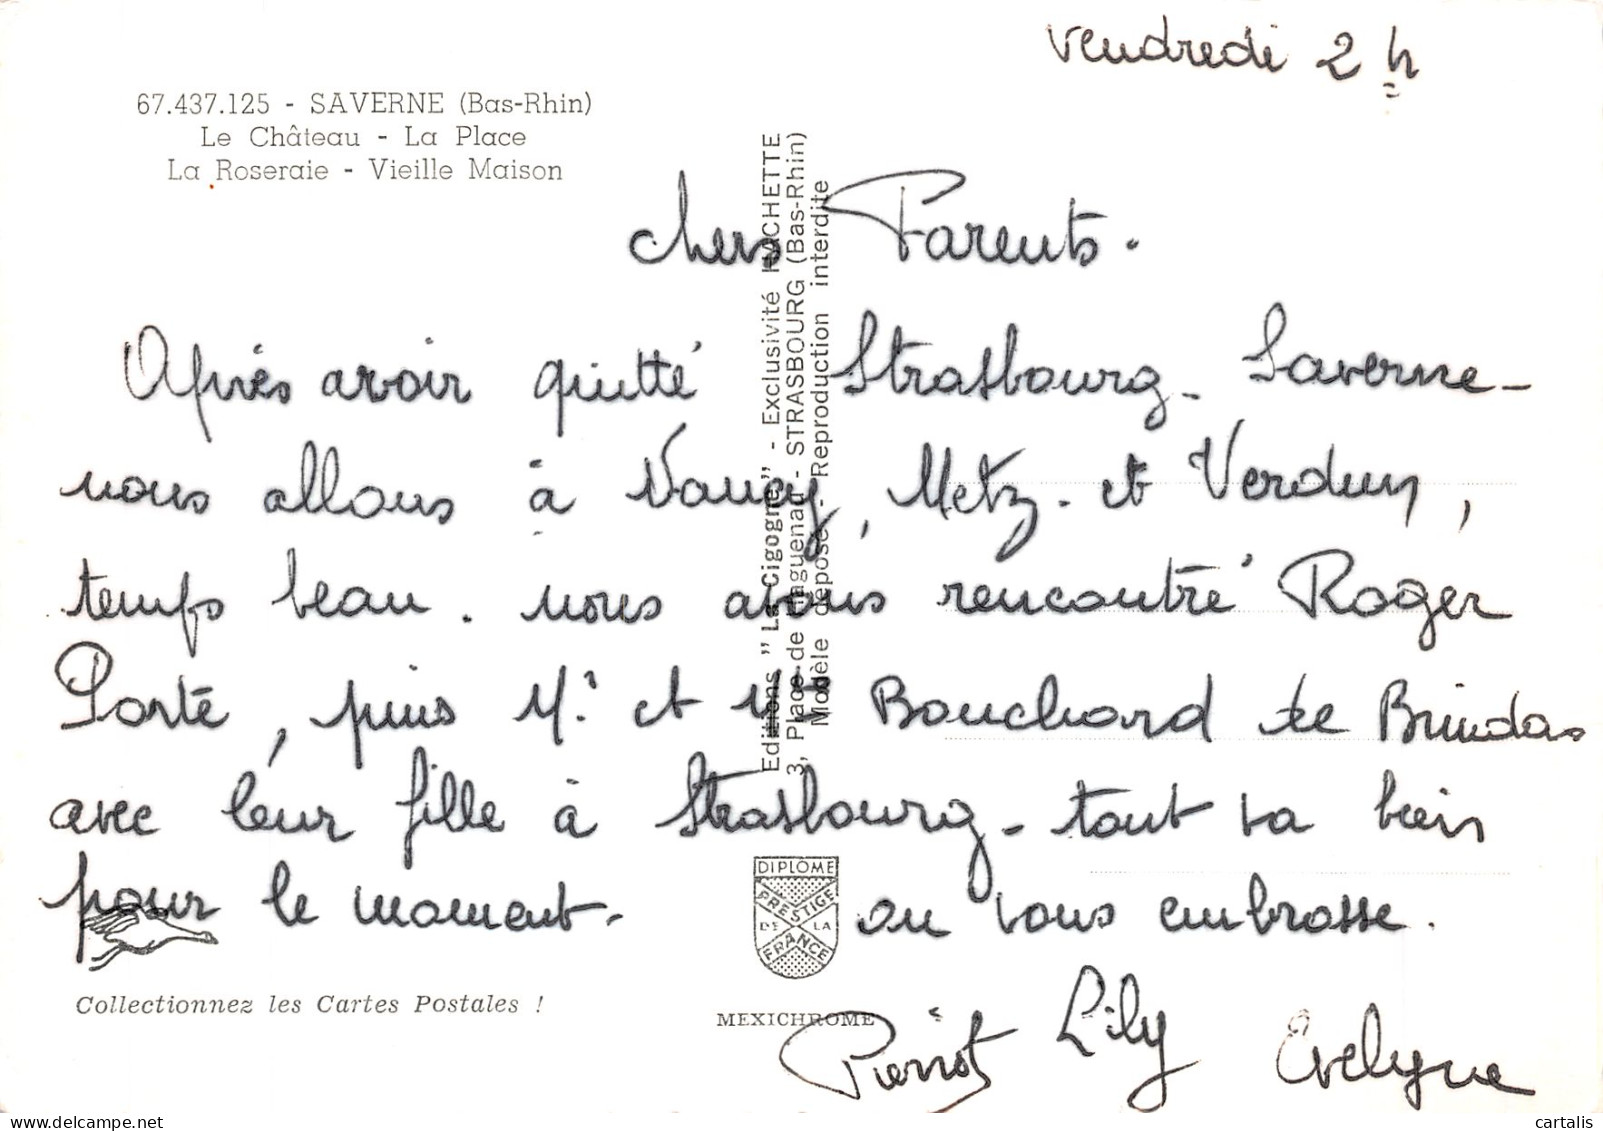 vendredi 2 h
67.437.125 - SAVERNE (Bas-Rhin)
Le Château - La Place
La Roseraie - Vieille Maison
chers Parents.
Après avoir quitté Strasbourg - Saverne -
nous allons à Nancy, Metz - et Verdun,
temps beau. nous avons rencontré Roger
Porte, puis Mr et Me Bouchard de Brindas
avec leur fille à Strasbourg - tout va bien
pour le moment. on vous embrasse.
Pierrot Lily Evelyne
Editions "La Cigogne" - Exclusivité HACHETTE
3, Place de Haguenau - STRASBOURG (Bas-Rhin)
Modèle déposé - Reproduction interdite
DIPLOME
PRESTIGE
DE LA
FRANCE
Collectionnez les Cartes Postales !
MEXICHROME
cartalis